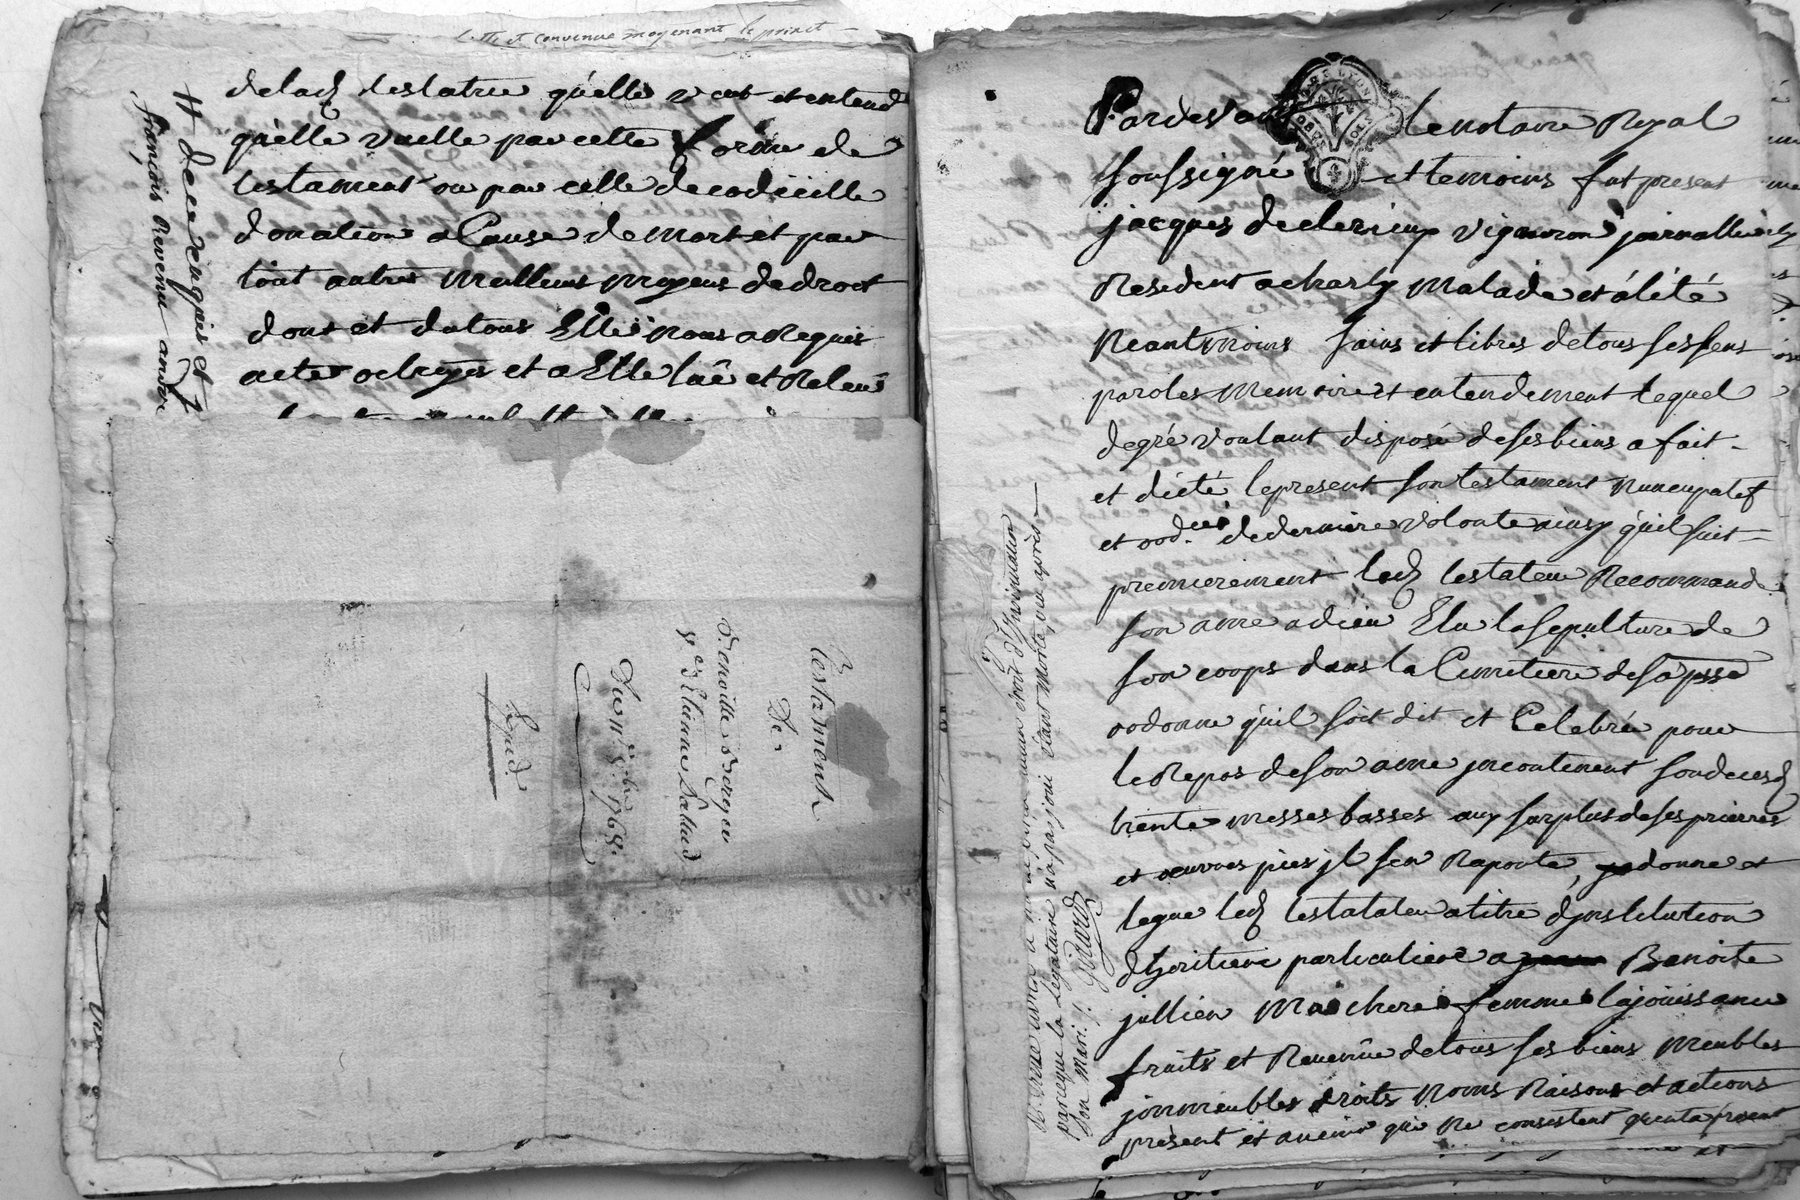 et convenue moyenant le prix et
de lad testatrice qu'elle veut et entend
qu'elle vaille par cette forme de
testament ou par celle de codicille
donation a Cause de mort et par
tout autres meilleurs moyens de droit
dont et du tous Elle nous a Requis
acte octroyés et a Elle lue et Releue
# de ce requis et
françois Revenu ander
Testament
De
V.e d'Etienne Sallad
Du 1768.
Expéd
Pardevant le notaire Royal
soussigné et temoins fut present
jacques declerieux vigneron journallier
Resident a charly malade et alité
Neantmoins sains et libres de tous ses sens
paroles memoire et entendement lequel
de gré voulant disposé de ses biens a fait
et dicté le present son testament Nuncupatif
et ord.re de derniere volonte ainsy qu'il suit
premierement led testateur Recommande
son ame a dieu Elu la sepulture de
son corps dans la Cimetiere de sa psse
ordonne qu'il soit dit et Celebré pour
le Repos de son ame jncontinent son deces
trente messes basses au surplus de ses prierres
et oeuvres pies jl s'en Raporte, donne et
legue led testatateur a titre d'jnstitution
d'heritiere particuliere a Benoite
jullien Ma chere femme la jouissance
fruits et Revenûe de tous ses biens meubles
jmmeubles droits Noms Raisons et actions
présent et avenir qui ne consistent quent a présent
aucun droit d'Insinuation
parceque la Legataire n'a pas joui étant morte, peu après
son mari ./. Girard